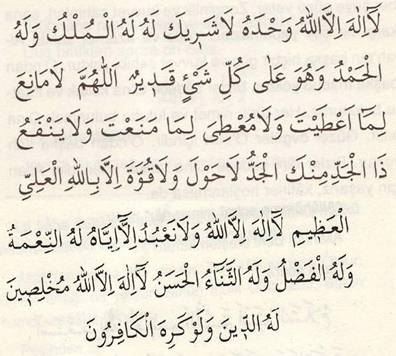 لَآ اِلٰهَ اِلَّا اللهُ وَحْدَهُ لَا شَرٖيكَ لَهُ لَهُ الْمُلْكُ وَلَهُ
الْحَمْدُ وَهُوَ عَلٰى كُلِّ شَىْءٍ قَدٖيرٌ اَللّٰهُمَّ لَا مَانِعَ
لِمَٓا اَعْطَيْتَ وَلَا مُعْطِىَ لِمَا مَنَعْتَ وَلَا يَنْفَعُ
ذَا الْجَدِّ مِنْكَ الْجَدُّ لَا حَوْلَ وَلَا قُوَّةَ اِلَّا بِاللهِ الْعَلِىِّ
الْعَظٖيمِ لَآ اِلٰهَ اِلَّا اللهُ وَلَا نَعْبُدُ اِلَّٓا اِيَّاهُ لَهُ النِّعْمَةُ
وَلَهُ الْفَضْلُ وَلَهُ الثَّنَٓاءُ الْحَسَنُ لَآ اِلٰهَ اِلَّا اللهُ مُخْلِصٖينَ
لَهُ الدّٖينَ وَلَوْ كَرِهَ الْكَافِرُونَ